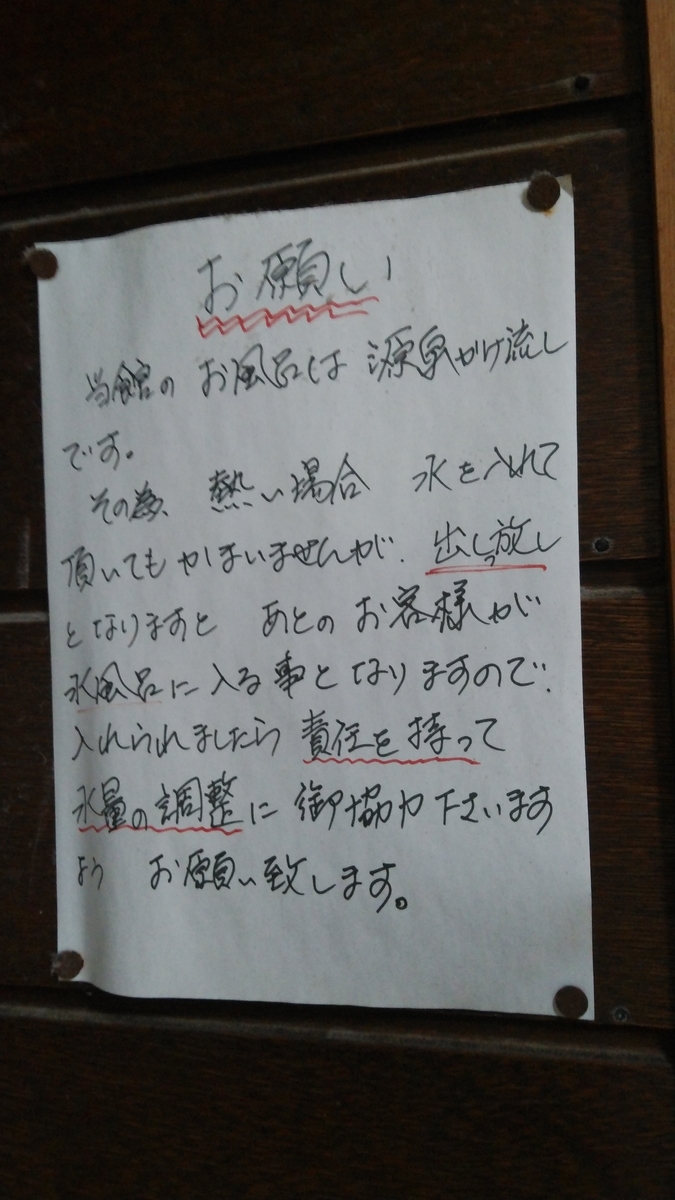 お願い
当館の お風呂は 源泉かけ流し
です。
その為、熱い場合 水を入れて
頂いてもかまいませんが、出しっ放し
となりますと あとのお客様が
水風呂に入る事となりますので、
入れられましたら責任を持って
水量の調整に御協力下さいます
よう お願い致します。